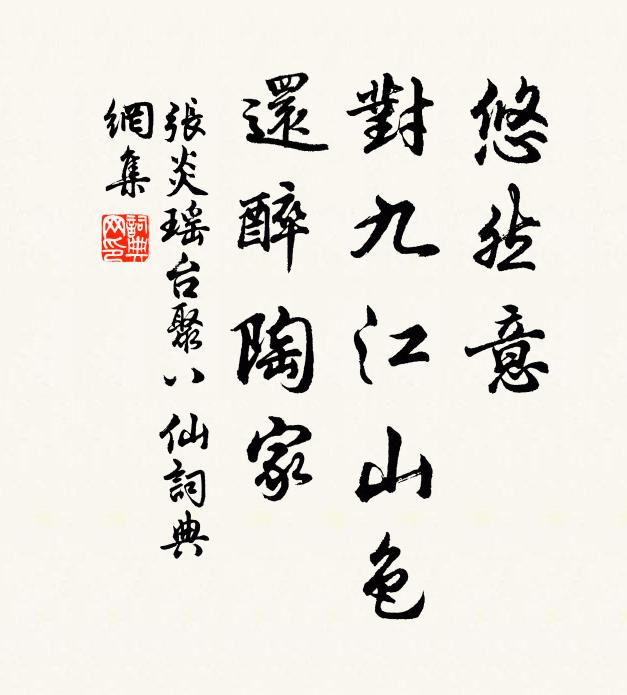 悠然意
對九江山色
還醉陶家
張炎瑶台聚八仙詞典
網集
詞典
网印